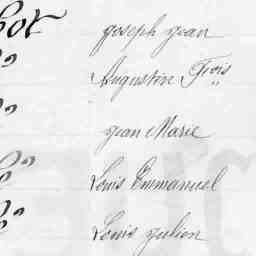 bot joseph jean
" Augustin Fois
" jean Marie
" Louis Emmanuel
" Louis julien